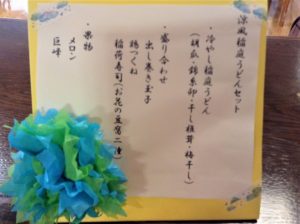 涼風稲庭うどんセット
・冷やし稲庭うどん
(胡瓜・錦糸卵・干し椎茸・梅干し)
・盛り合わせ
出し巻き玉子
鶏つくね
稲荷寿司(お花の豆腐二
・果物
メロン
巨峰